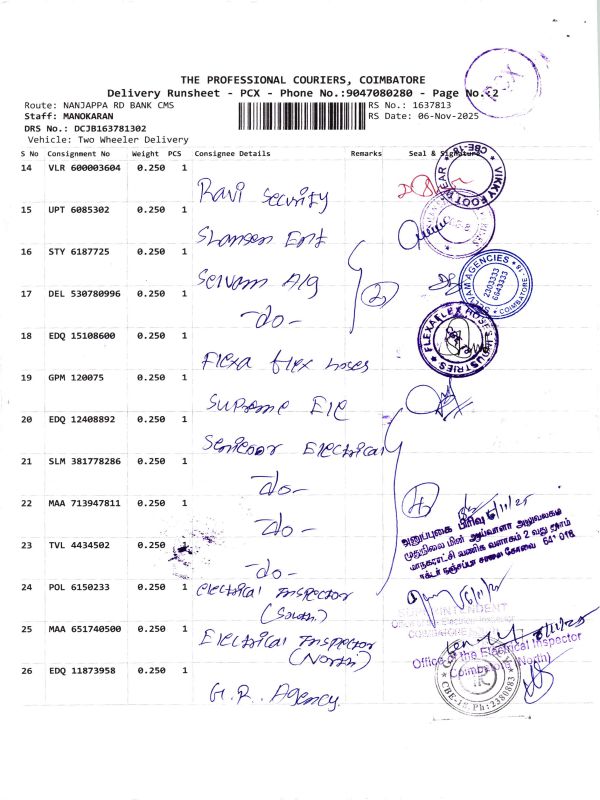 PCX
THE PROFESSIONAL COURIERS, COIMBATORE
Delivery Runsheet - PCX - Phone No.:9047080280 - Page No.:2
Route: NANJAPPA RD BANK CMS
RS No.: 1637813
Staff: MANOKARAN
RS Date: 06-Nov-2025
DRS No.: DCJB163781302
Vehicle: Two Wheeler Delivery
S No Consignment No Weight PCS Consignee Details Remarks Seal & Signature
14 VLR 600003604 0.250 1 Ravi Security
VIKKY FOOT WEAR CBE-18
15 UPT 6085302 0.250 1
16 STY 6187725 0.250 1 Selvam A/g
SELVAM AGENCIES 2303333 6643333 COIMBATORE-18
17 DEL 530780996 0.250 1 -do- 2
18 EDQ 15108600 0.250 1 Flexa flex hoses
FLEXAFLEX HOSES INDUSTRIES
19 GPM 120075 0.250 1 Supreme Ele
20 EDQ 12408892 0.250 1 Electrical
21 SLM 381778286 0.250 1 -do-
22 MAA 713947811 0.250 1 -do- 4
6/11/25
அனுப்புகை பிரிவு
முதுநிலை மின் ஆய்வாளர் அலுவலகம்
மாநகராட்சி வணிக வளாகம் 2 வது தளம்
டாக்டர் நஞ்சப்பா சாலை கோவை 641 018
23 TVL 4434502 0.250 1 -do-
24 POL 6150233 0.250 1 Electrical Inspector
(South)
6/11/25
SUPERINTENDENT
COIMBATORE
25 MAA 651740500 0.250 1 Electrical Inspector
(North)
6/11/25
Office of the Electrical Inspector
Coimbatore (North)
26 EDQ 11873958 0.250 1 G.R. Agency
CBE-18. Ph: 2380883